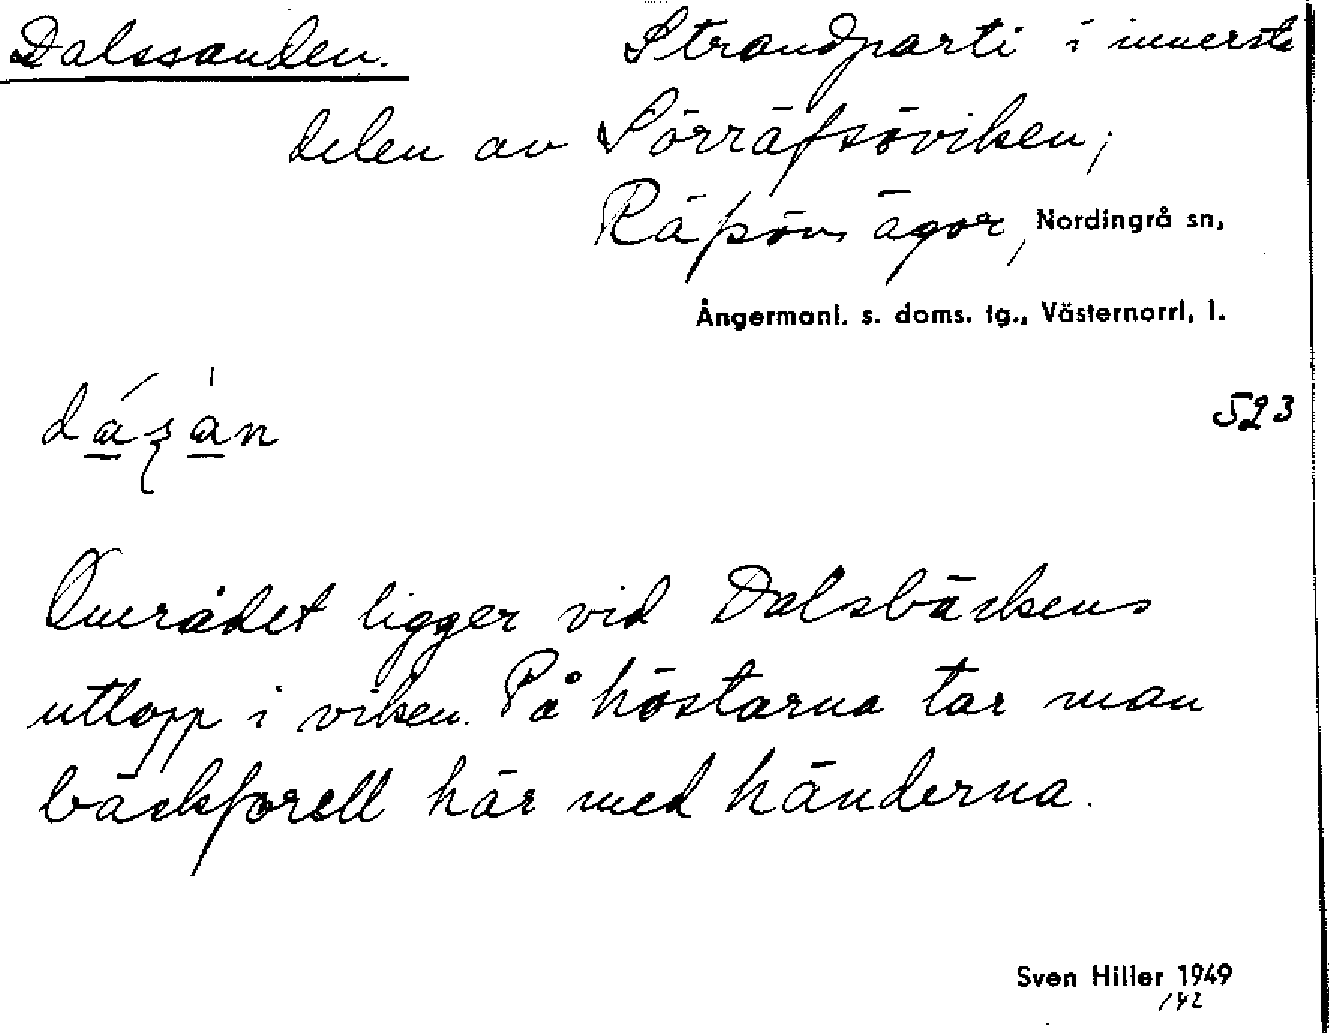 Dalssanden. Strandparti i innerste
delen av Sörräfsöviken,
Räfsöns ägor, Nordingrå sn,
Ångermanl. s. doms. tg., Västernorrl. l.
523
Området ligger vid Dalsbäckens
utlopp i viken. På höstarna tar man
bäckforell här med händerna.
Sven Hiller 1949